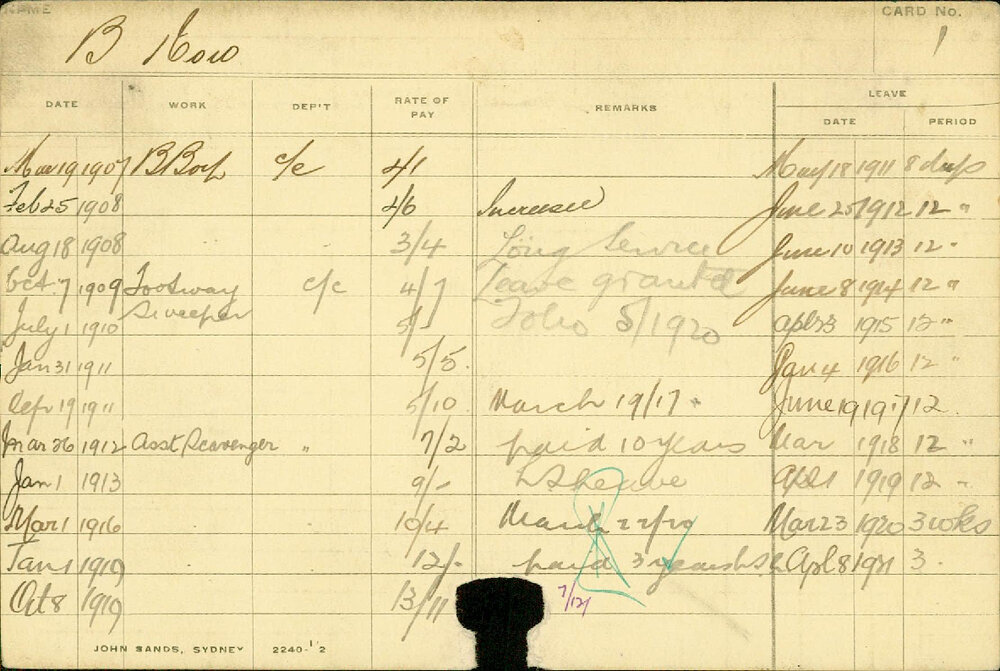 NAME CARD No.
B How 1
DATE WORK DEP'T RATE OF PAY REMARKS LEAVE
DATE PERIOD
Mar 19 1907 B Boy c/c 4/1 May 18 1911 8 days
Feb 25 1908 4/6 Increased June 25 1912 12 "
Aug 18 1908 3/4 Long Service June 10 1913 12 "
Oct 7 1909 Footway c/c 4/7 Leave granted June 8 1914 12 "
Sweeper
July 1 1910 5/- Folio 5/1920 Apl 23 1915 12 "
Jan 31 1911 5/5 Jan 4 1916 12 "
Sep 19 1911 5/10 March 19/17 June 19 1917 12
Mar 26 1912 Asst Scavenger " 7/2 paid 10 years Mar 1918 12 "
Jan 1 1913 9/- LS leave Apl 1 1919 12 "
Mar 1 1916 10/4 March 22/20 Mar 23 1920 3 wks
Jan 1 1919 12/- paid 3 years LSL Apl 8 1921 3
Oct 8 1919 13/11 7/12/
JOHN SANDS, SYDNEY 2240-1'2